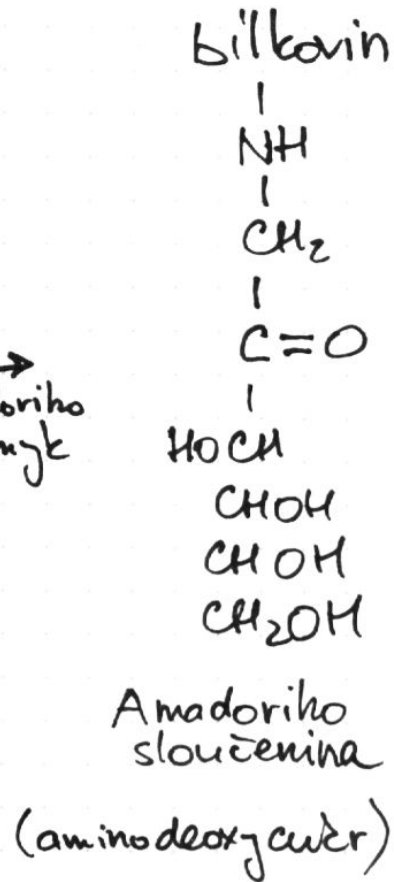 bílkovin
NH
CH₂
C=O
→
oriho
HOCH
myk
CHOH
CHOH
CH₂OH
Amadoriho
sloučenina
(aminodeoxycukr)